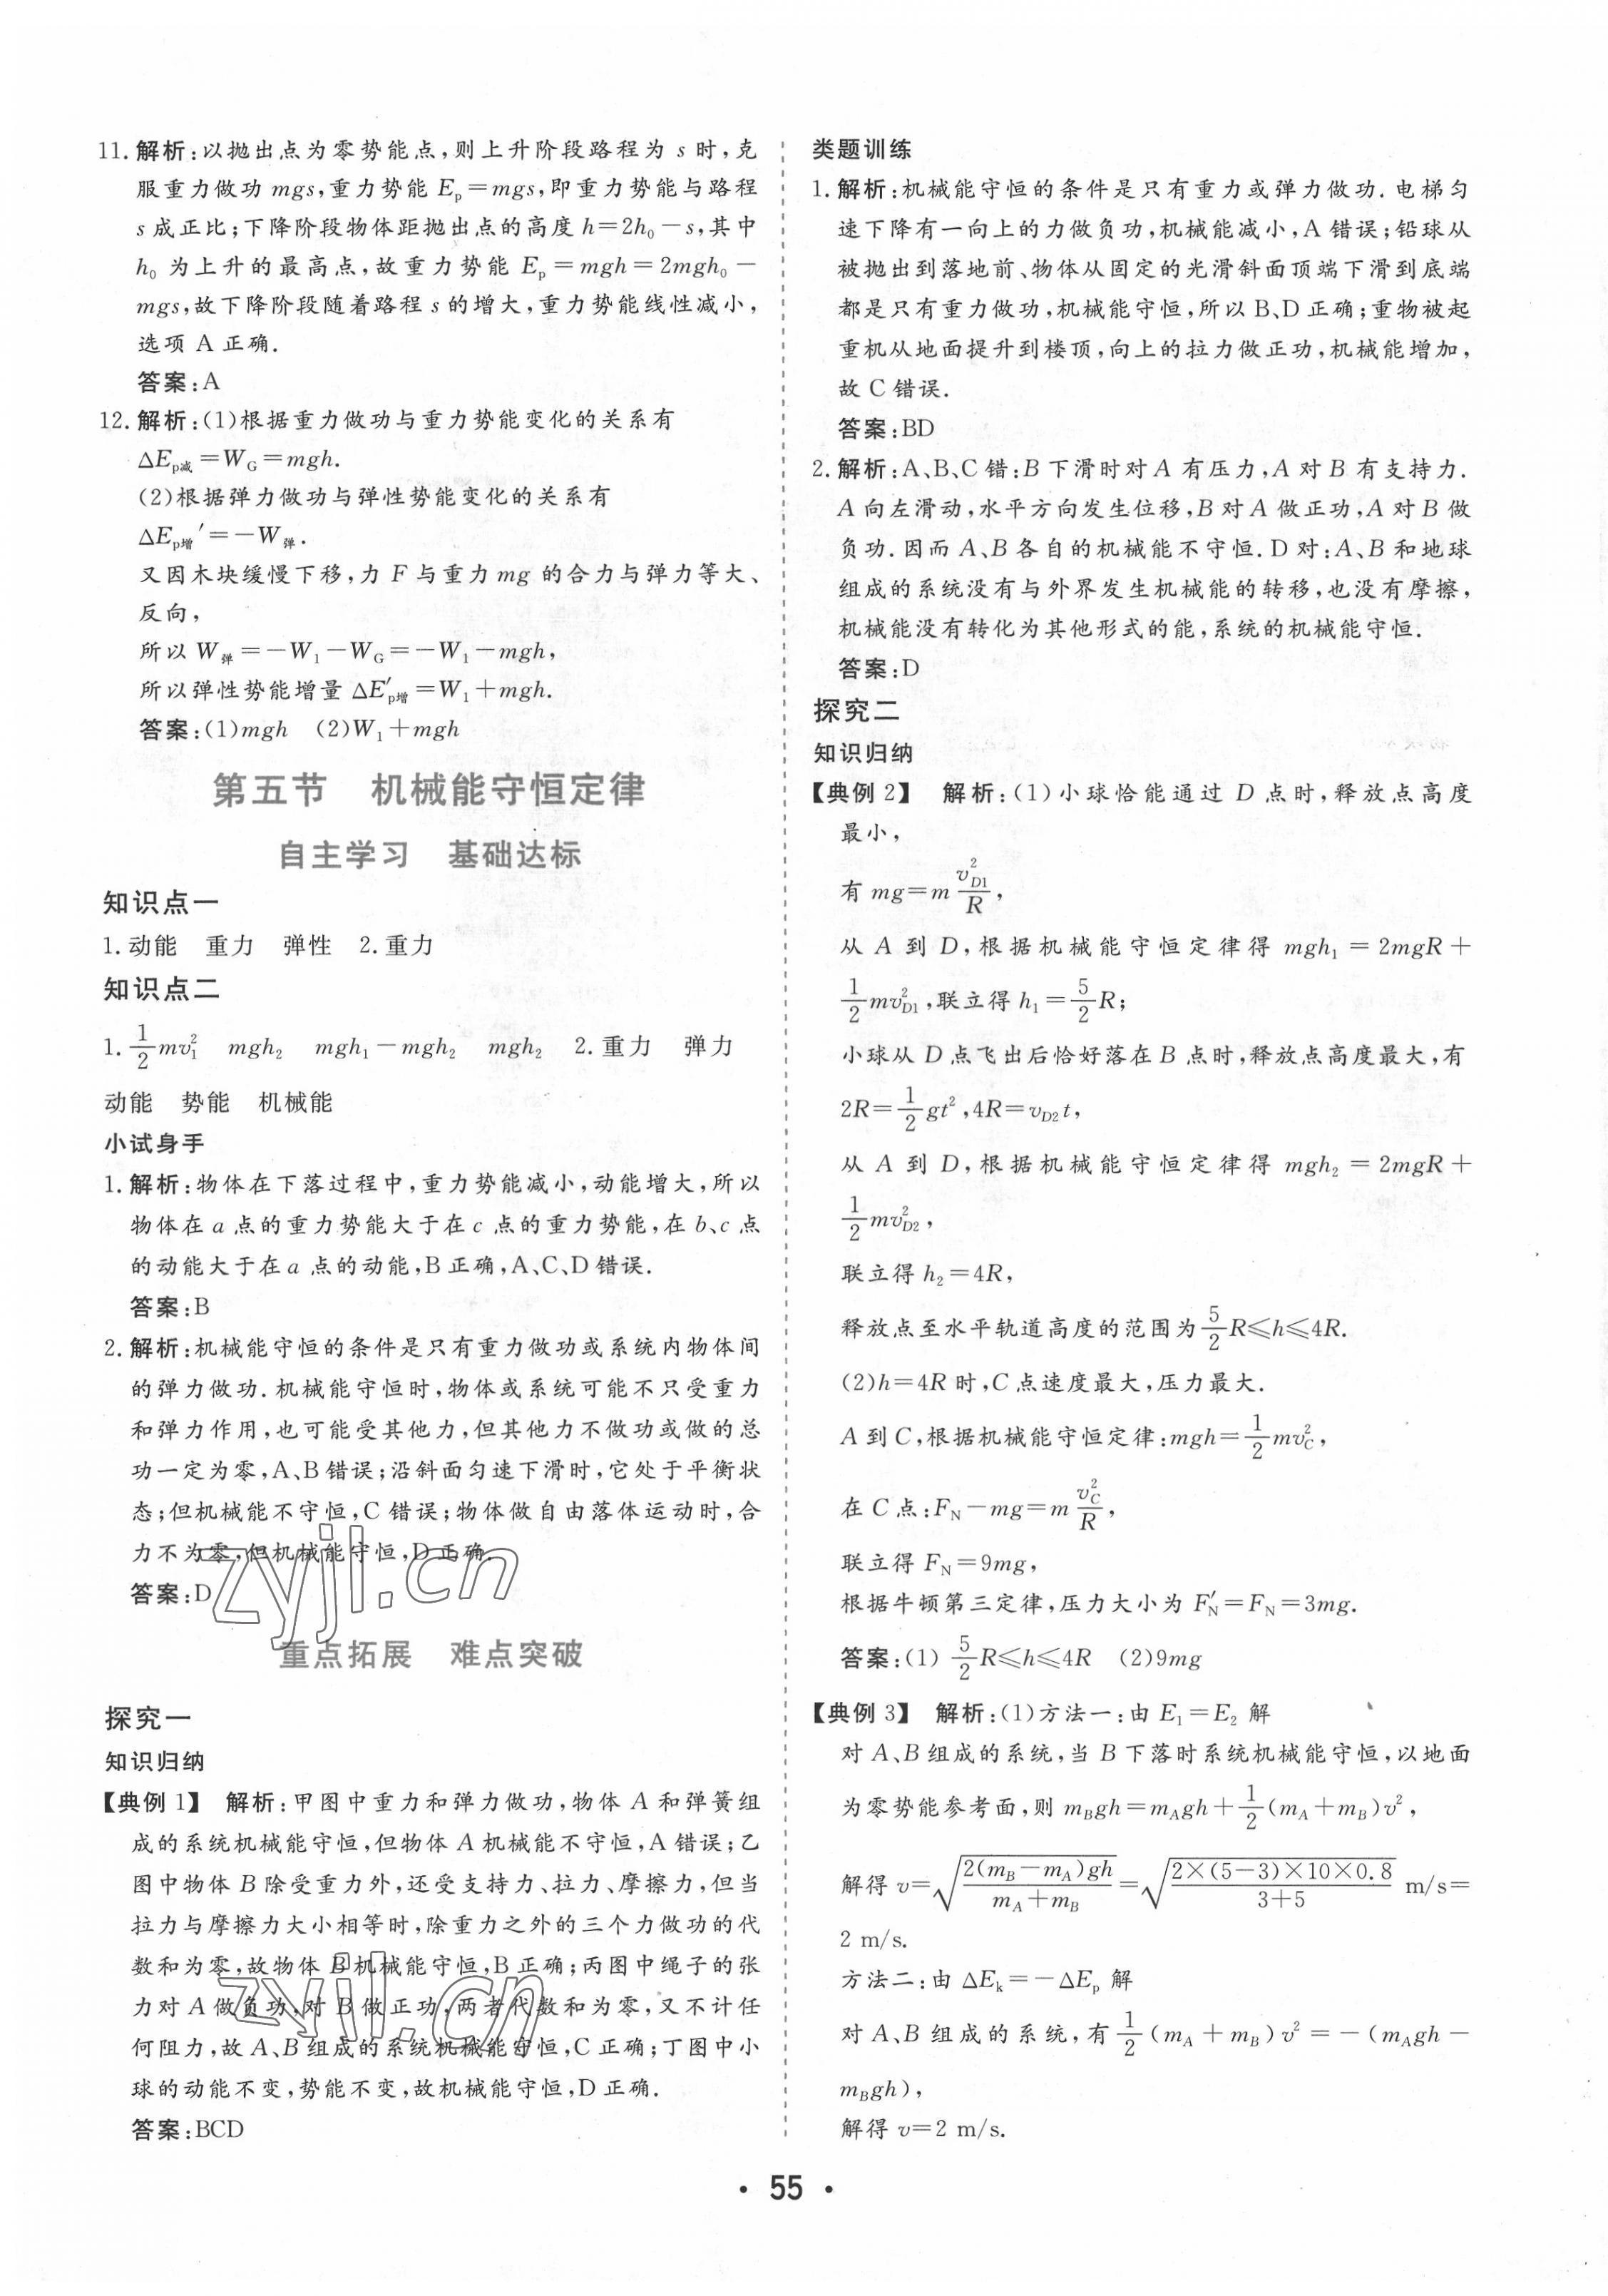 11. 解析:以抛出点为零势能点,则上升阶段路程为 s 时,克
服重力做功 mgs,重力势能 Eₚ=mgs,即重力势能与路程
s 成正比;下降阶段物体距抛出点的高度 h=2h₀-s,其中
h₀ 为上升的最高点,故重力势能 Eₚ=mgh=2mgh₀-
mgs,故下降阶段随着路程 s 的增大,重力势能线性减小,
选项 A 正确.
答案:A
12. 解析:(1)根据重力做功与重力势能变化的关系有
ΔEp减=W_G=mgh.
(2)根据弹力做功与弹性势能变化的关系有
ΔEp增′=-W弹.
又因木块缓慢下移,力 F 与重力 mg 的合力与弹力等大、
反向,
所以 W弹=-W₁-W_G=-W₁-mgh,
所以弹性势能增量 ΔE′p增=W₁+mgh.
答案:(1)mgh (2)W₁+mgh
第五节 机械能守恒定律
自主学习 基础达标
知识点一
1. 动能 重力 弹性 2. 重力
知识点二
1. 1/2 mv₁² mgh₂ mgh₁-mgh₂ mgh₂ 2. 重力 弹力
动能 势能 机械能
小试身手
1. 解析:物体在下落过程中,重力势能减小,动能增大,所以
物体在 a 点的重力势能大于在 c 点的重力势能,在 b、c 点
的动能大于在 a 点的动能,B 正确,A、C、D 错误.
答案:B
2. 解析:机械能守恒的条件是只有重力做功或系统内物体间
的弹力做功. 机械能守恒时,物体或系统可能不只受重力
和弹力作用,也可能受其他力,但其他力不做功或做的总
功一定为零,A、B 错误;沿斜面匀速下滑时,它处于平衡状
态;但机械能不守恒,C 错误;物体做自由落体运动时,合
力不为零,但机械能守恒,D 正确.
答案:D
zyjl.cn
重点拓展 难点突破
探究一
知识归纳
【典例 1】 解析:甲图中重力和弹力做功,物体 A 和弹簧组
成的系统机械能守恒,但物体 A 机械能不守恒,A 错误;乙
图中物体 B 除受重力外,还受支持力、拉力、摩擦力,但当
拉力与摩擦力大小相等时,除重力之外的三个力做功的代
数和为零,故物体 B 机械能守恒,B 正确;丙图中绳子的张
力对 A 做负功,对 B 做正功,两者代数和为零,又不计任
何阻力,故 A、B 组成的系统机械能守恒,C 正确;丁图中小
球的动能不变,势能不变,故机械能守恒,D 正确.
答案:BCD
zyjl.cn
类题训练
1. 解析:机械能守恒的条件是只有重力或弹力做功. 电梯匀
速下降有一向上的力做负功,机械能减小,A 错误;铅球从
被抛出到落地前、物体从固定的光滑斜面顶端下滑到底端
都是只有重力做功,机械能守恒,所以 B、D 正确;重物被起
重机从地面提升到楼顶,向上的拉力做正功,机械能增加,
故 C 错误.
答案:BD
2. 解析:A、B、C 错:B 下滑时对 A 有压力,A 对 B 有支持力.
A 向左滑动,水平方向发生位移,B 对 A 做正功,A 对 B 做
负功. 因而 A、B 各自的机械能不守恒. D 对:A、B 和地球
组成的系统没有与外界发生机械能的转移,也没有摩擦,
机械能没有转化为其他形式的能,系统的机械能守恒.
答案:D
探究二
知识归纳
【典例 2】 解析:(1)小球恰能通过 D 点时,释放点高度
最小,
有 mg=m v_D1²/R,
从 A 到 D,根据机械能守恒定律得 mgh₁=2mgR+
1/2 mv_D1²,联立得 h₁=5/2 R;
小球从 D 点飞出后恰好落在 B 点时,释放点高度最大,有
2R=1/2 gt²,4R=v_D2 t,
从 A 到 D,根据机械能守恒定律得 mgh₂=2mgR+
1/2 mv_D2²,
联立得 h₂=4R,
释放点至水平轨道高度的范围为 5/2 R≤h≤4R.
(2)h=4R 时,C 点速度最大,压力最大.
A 到 C,根据机械能守恒定律:mgh=1/2 mv_C²,
在 C 点:F_N-mg=m v_C²/R,
联立得 F_N=9mg,
根据牛顿第三定律,压力大小为 F′_N=F_N=3mg.
答案:(1) 5/2 R≤h≤4R (2)9mg
【典例 3】 解析:(1)方法一:由 E₁=E₂ 解
对 A、B 组成的系统,当 B 下落时系统机械能守恒,以地面
为零势能参考面,则 m_B gh=m_A gh+1/2(m_A+m_B)v²,
解得 v=√(2(m_B-m_A)gh/(m_A+m_B))=√(2×(5-3)×10×0.8/(3+5)) m/s=
2 m/s.
方法二:由 ΔE_k=-ΔE_p 解
对 A、B 组成的系统,有 1/2(m_A+m_B)v²=-(m_A gh-
m_B gh),
解得 v=2 m/s.
· 55 ·